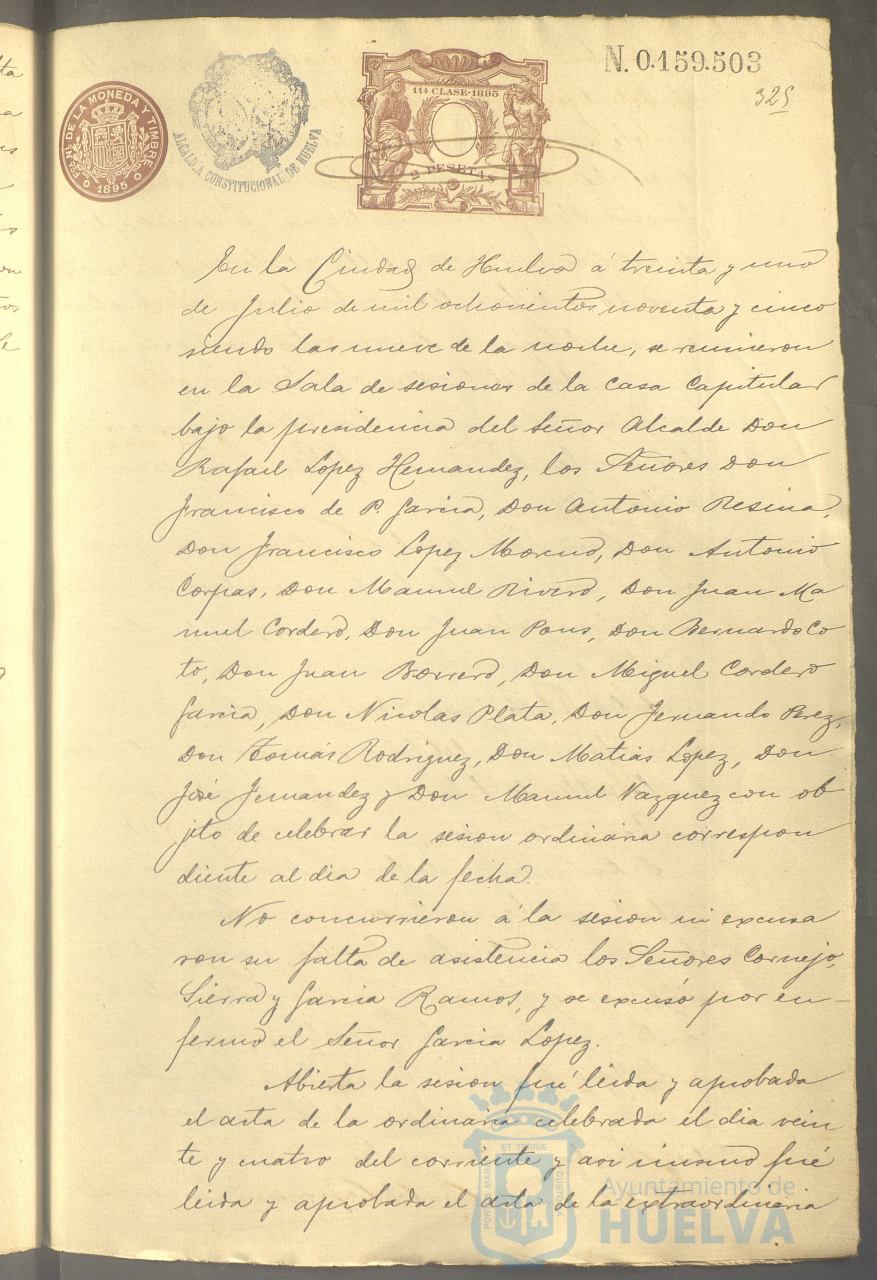 N. 0.159.503
325
FCA NL DE LA MONEDA Y TIMBRE
1895
ALCALDIA CONSTITUCIONAL DE HUELVA
11ª CLASE·1895
2 PESETAS
En la Ciudad de Huelva á treinta y uno
de Julio de mil ochocientos noventa y cinco
siendo las nueve de la noche, se reunieron
en la Sala de sesiones de la Casa Capitular
bajo la presidencia del Señor Alcalde Don
Rafael Lopez Hernandez, los Señores Don
Francisco de P. Garcia, Don Antonio Resina,
Don Francisco Lopez Moreno, Don Antonio
Corpas, Don Manuel Rivero, Don Juan Ma
nuel Cordero, Don Juan Pons, Don Bernardo Co
to, Don Juan Borrero, Don Miguel Cordero
Garcia, Don Nicolas Plata, Don Fernando Perez,
Don Tomás Rodriguez, Don Matias Lopez, Don
José Fernandez y Don Manuel Vazquez con ob
jeto de celebrar la sesion ordinaria correspon
diente al dia de la fecha.
No concurrieron á la sesion ni excusa
ron su falta de asistencia los Señores Cornejo,
Sierra y Garcia Ramos, y se excusó por en-
fermo el Señor Garcia Lopez.
Abierta la sesion fué leida y aprobada
el acta de la ordinaria celebrada el dia vein
te y cuatro del corriente y asi mismo fué
leida y aprobada el acta de la extraordinaria
PORTUS MARIS ET TERRAE CUSTODIA
Ayuntamiento de
HUELVA